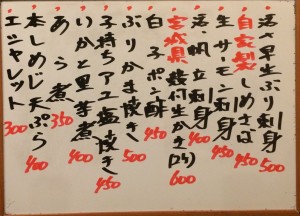 活〆早生ぶり刺身 500
自家製しめさば 450
生サーモン刺身 450
活帆立刺身 400
宮城県殻付生かき(2ケ) 600
白子ポン酢 450
ぶりかま焼き 500
子持ちアユ塩焼き 450
いかと里芋煮 400
あら煮 350
本しめじ天ぷら 400
エシャレット 300